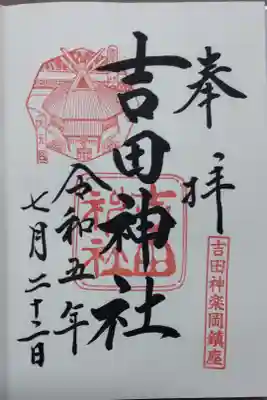 奉拝
吉田神楽岡鎮座
吉田神社
吉田神社
令和五年
七月二十二日